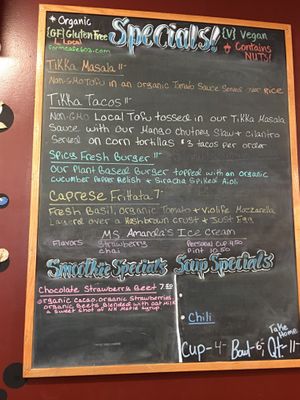 * Organic
{GF} Gluten Free
L Local
Specials!
{V} Vegan
* Contains NUTS!
Tikka Masala 11-
Non-GMO Tofu in an organic Tomato Sauce Served over rice
Tikka Tacos 11-
Non-GMO Local Tofu tossed in our Tikka Masala
Sauce with our Mango Chutney Slaw + cilantro
Served on corn tortillas *3 tacos per order
Spicy Fresh Burger 11-
Our Plant Based Burger topped with an organic
cucumber Pepper Relish + Siracha Spiked Aioli
Caprese Frittata 7-
Fresh Basil, organic Tomato + Violife Mozzarella
Layered over a Hashbrown Crust + Just Egg
Ms. Amanda's Ice Cream
Flavors Strawberry
Chai
Personal Cup 4.50
Pint 10.50
Smoothie Specials
Chocolate Strawberry Beet 7.50
organic cacao, organic strawberries,
organic Beets Blended with oat milk
a sweet shot of NH Maple Syrup
Soup Specials
Chili
Take Home
Cup-4- Bowl-6- Qt-11-